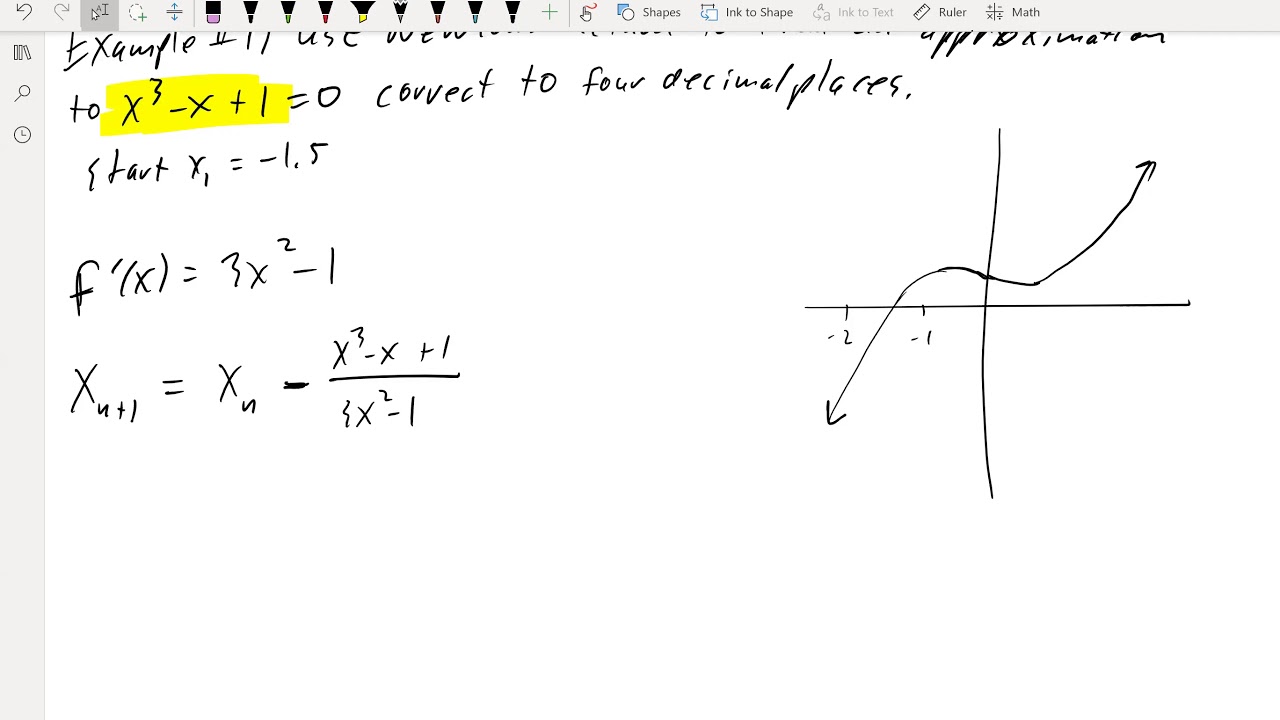 Shapes Ink to Shape Ink to Text Ruler Math
Example #1) Use approximation
to x³-x+1=0 correct to four decimal places.
Start x₁ = -1.5
f'(x) = 3x²-1
Xₙ₊₁ = Xₙ - x³-x+1
3x²-1
-2 -1